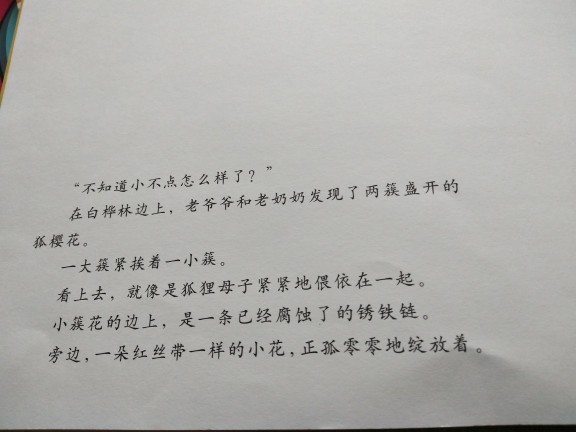 “不知道小不点怎么样了？”
在白桦林边上，老爷爷和老奶奶发现了两簇盛开的
狐樱花。
一大簇紧挨着一小簇。
看上去，就像是狐狸母子紧紧地偎依在一起。
小簇花的边上，是一条已经腐蚀了的锈铁链。
旁边，一朵红丝带一样的小花，正孤零零地绽放着。